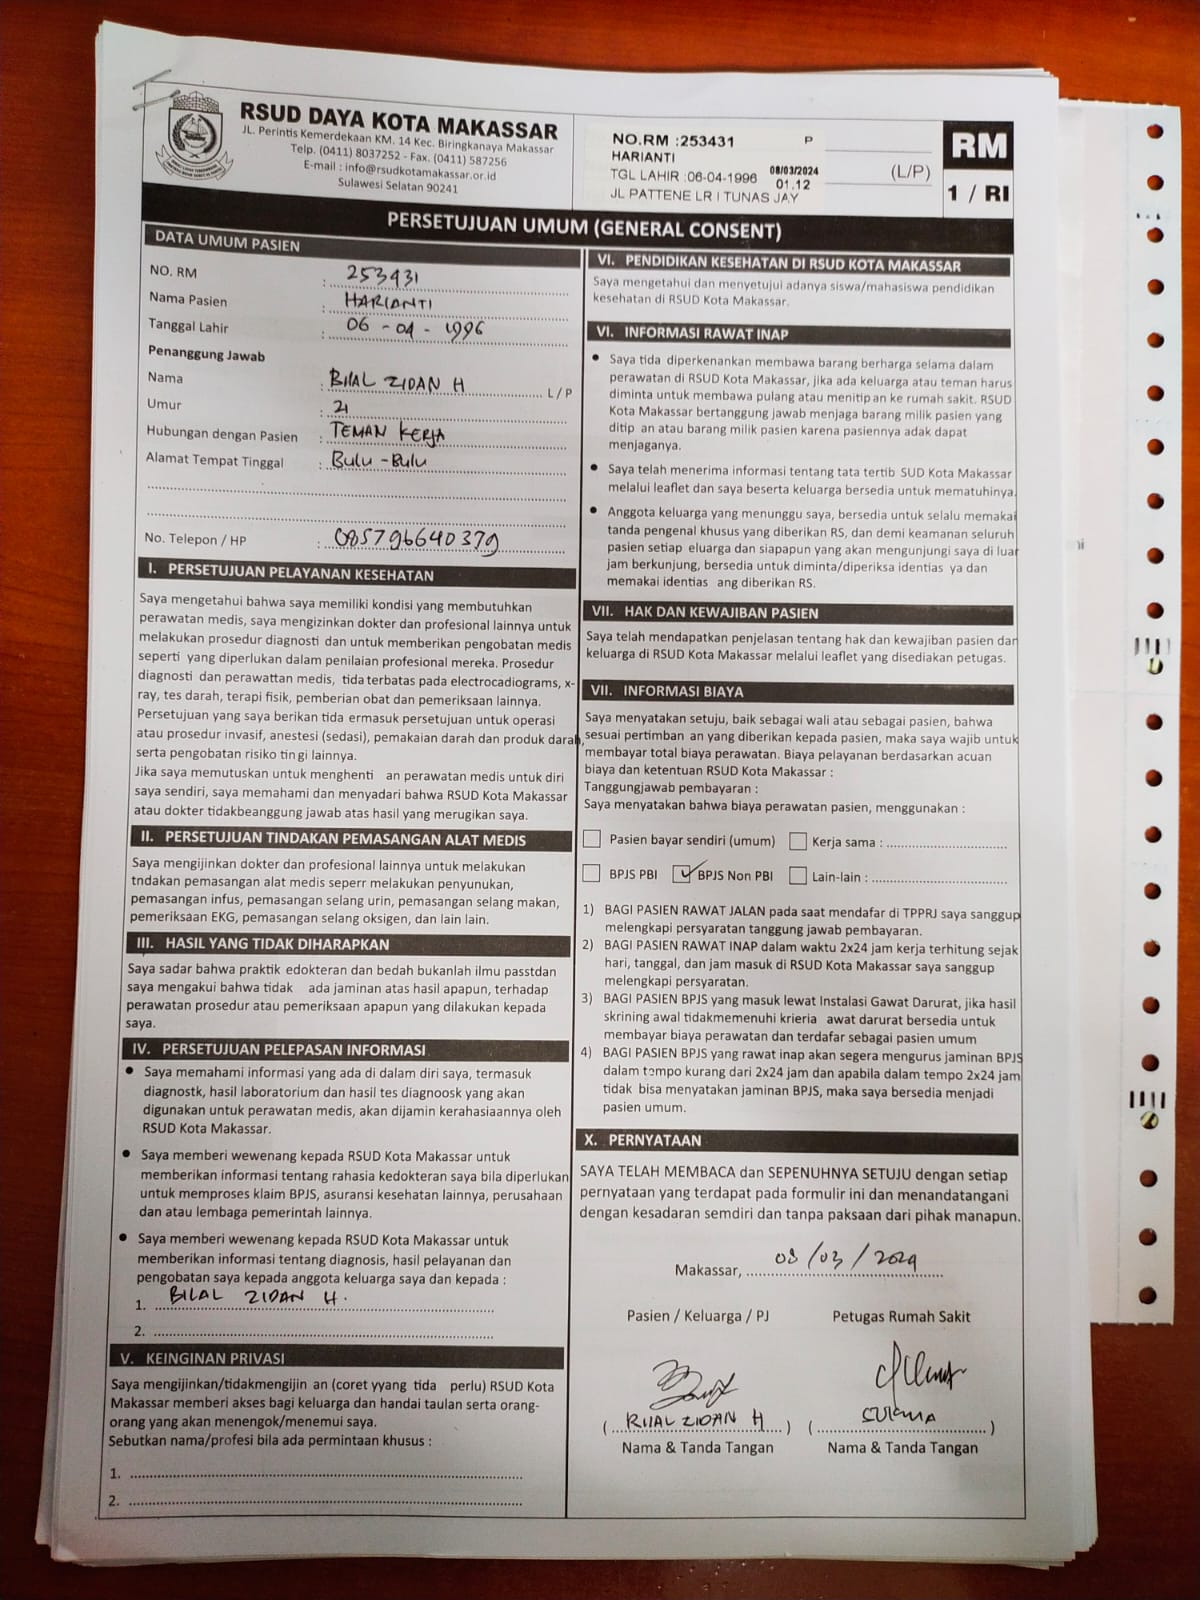 RSUD DAYA KOTA MAKASSAR
JL. Perintis Kemerdekaan KM. 14 Kec. Biringkanaya Makassar
Telp. (0411) 8037252 - Fax. (0411) 587256
E-mail : info@rsudkotamakassar.or.id
Sulawesi Selatan 90241
NO.RM :253431 P
HARIANTI
TGL LAHIR :06-04-1996 08/03/2024
01.12
JL PATTENE LR I TUNAS JAY
(L/P)
RM
1 / RI
PERSETUJUAN UMUM (GENERAL CONSENT)
DATA UMUM PASIEN
NO. RM : 253431
Nama Pasien : HARIANTI
Tanggal Lahir : 06 - 04 - 1996
Penanggung Jawab
Nama : BILAL ZIDAN H L / P
Umur : 21
Hubungan dengan Pasien : TEMAN KERJA
Alamat Tempat Tinggal : BULU - BULU
No. Telepon / HP : 085796640379
I. PERSETUJUAN PELAYANAN KESEHATAN
Saya mengetahui bahwa saya memiliki kondisi yang membutuhkan
perawatan medis, saya mengizinkan dokter dan profesional lainnya untuk
melakukan prosedur diagnosti dan untuk memberikan pengobatan medis
seperti yang diperlukan dalam penilaian profesional mereka. Prosedur
diagnosti dan perawattan medis, tida terbatas pada electrocadiograms, x-
ray, tes darah, terapi fisik, pemberian obat dan pemeriksaan lainnya.
Persetujuan yang saya berikan tida ermasuk persetujuan untuk operasi
atau prosedur invasif, anestesi (sedasi), pemakaian darah dan produk darah,
serta pengobatan risiko tin gi lainnya.
Jika saya memutuskan untuk menghenti an perawatan medis untuk diri
saya sendiri, saya memahami dan menyadari bahwa RSUD Kota Makassar
atau dokter tidakbeanggung jawab atas hasil yang merugikan saya.
II. PERSETUJUAN TINDAKAN PEMASANGAN ALAT MEDIS
Saya mengijinkan dokter dan profesional lainnya untuk melakukan
tndakan pemasangan alat medis seperr melakukan penyunukan,
pemasangan infus, pemasangan selang urin, pemasangan selang makan,
pemeriksaan EKG, pemasangan selang oksigen, dan lain lain.
III. HASIL YANG TIDAK DIHARAPKAN
Saya sadar bahwa praktik edokteran dan bedah bukanlah ilmu passtdan
saya mengakui bahwa tidak ada jaminan atas hasil apapun, terhadap
perawatan prosedur atau pemeriksaan apapun yang dilakukan kepada
saya.
IV. PERSETUJUAN PELEPASAN INFORMASI
• Saya memahami informasi yang ada di dalam diri saya, termasuk
diagnostk, hasil laboratorium dan hasil tes diagnoosk yang akan
digunakan untuk perawatan medis, akan dijamin kerahasiaannya oleh
RSUD Kota Makassar.
• Saya memberi wewenang kepada RSUD Kota Makassar untuk
memberikan informasi tentang rahasia kedokteran saya bila diperlukan
untuk memproses klaim BPJS, asuransi kesehatan lainnya, perusahaan
dan atau lembaga pemerintah lainnya.
• Saya memberi wewenang kepada RSUD Kota Makassar untuk
memberikan informasi tentang diagnosis, hasil pelayanan dan
pengobatan saya kepada anggota keluarga saya dan kepada :
1. BILAL ZIDAN H.
2.
V. KEINGINAN PRIVASI
Saya mengijinkan/tidakmengijin an (coret yyang tida perlu) RSUD Kota
Makassar memberi akses bagi keluarga dan handai taulan serta orang-
orang yang akan menengok/menemui saya.
Sebutkan nama/profesi bila ada permintaan khusus :
1.
2.
VI. PENDIDIKAN KESEHATAN DI RSUD KOTA MAKASSAR
Saya mengetahui dan menyetujui adanya siswa/mahasiswa pendidikan
kesehatan di RSUD Kota Makassar.
VI. INFORMASI RAWAT INAP
• Saya tida diperkenankan membawa barang berharga selama dalam
perawatan di RSUD Kota Makassar, jika ada keluarga atau teman harus
diminta untuk membawa pulang atau menitip an ke rumah sakit. RSUD
Kota Makassar bertanggung jawab menjaga barang milik pasien yang
ditip an atau barang milik pasien karena pasiennya adak dapat
menjaganya.
• Saya telah menerima informasi tentang tata tertib SUD Kota Makassar
melalui leaflet dan saya beserta keluarga bersedia untuk mematuhinya.
• Anggota keluarga yang menunggu saya, bersedia untuk selalu memakai
tanda pengenal khusus yang diberikan RS, dan demi keamanan seluruh
pasien setiap eluarga dan siapapun yang akan mengunjungi saya di luar
jam berkunjung, bersedia untuk diminta/diperiksa identias ya dan
memakai identias ang diberikan RS.
VII. HAK DAN KEWAJIBAN PASIEN
Saya telah mendapatkan penjelasan tentang hak dan kewajiban pasien dan
keluarga di RSUD Kota Makassar melalui leaflet yang disediakan petugas.
VII. INFORMASI BIAYA
Saya menyatakan setuju, baik sebagai wali atau sebagai pasien, bahwa
sesuai pertimban an yang diberikan kepada pasien, maka saya wajib untuk
membayar total biaya perawatan. Biaya pelayanan berdasarkan acuan
biaya dan ketentuan RSUD Kota Makassar :
Tanggungjawab pembayaran :
Saya menyatakan bahwa biaya perawatan pasien, menggunakan :
Pasien bayar sendiri (umum) Kerja sama :
BPJS PBI ✓ BPJS Non PBI Lain-lain :
1) BAGI PASIEN RAWAT JALAN pada saat mendafar di TPPRJ saya sanggup
melengkapi persyaratan tanggung jawab pembayaran.
2) BAGI PASIEN RAWAT INAP dalam waktu 2x24 jam kerja terhitung sejak
hari, tanggal, dan jam masuk di RSUD Kota Makassar saya sanggup
melengkapi persyaratan.
3) BAGI PASIEN BPJS yang masuk lewat Instalasi Gawat Darurat, jika hasil
skrining awal tidakmemenuhi krieria awat darurat bersedia untuk
membayar biaya perawatan dan terdafar sebagai pasien umum
4) BAGI PASIEN BPJS yang rawat inap akan segera mengurus jaminan BPJS
dalam tempo kurang dari 2x24 jam dan apabila dalam tempo 2x24 jam
tidak bisa menyatakan jaminan BPJS, maka saya bersedia menjadi
pasien umum.
X. PERNYATAAN
SAYA TELAH MEMBACA dan SEPENUHNYA SETUJU dengan setiap
pernyataan yang terdapat pada formulir ini dan menandatangani
dengan kesadaran semdiri dan tanpa paksaan dari pihak manapun.
Makassar, 08 / 03 / 2024
Pasien / Keluarga / PJ Petugas Rumah Sakit
( BILAL ZIDAN H ) ( )
Nama & Tanda Tangan Nama & Tanda Tangan